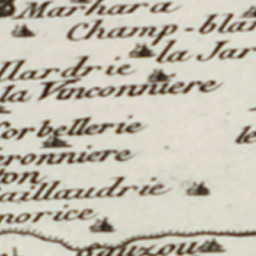 Marhara
Champ-blan
la Jar
llardrie
la Vinconniere
orbellerie
le
eronniere
ton
aillaudrie
morice
auzou